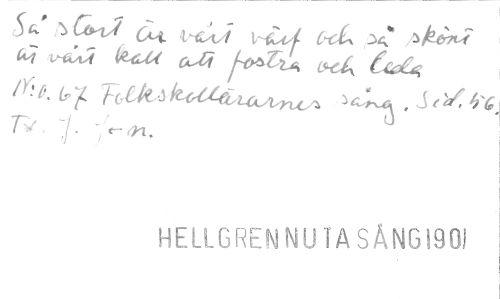 Så stort är vårt värf och så skönt
är vårt kall att fostra och leda
N:o. 67 Folkskollärarnes sång. Sid. 56.
Tx. J. J-n.
HELLGREN NUTA SÅNG 1901